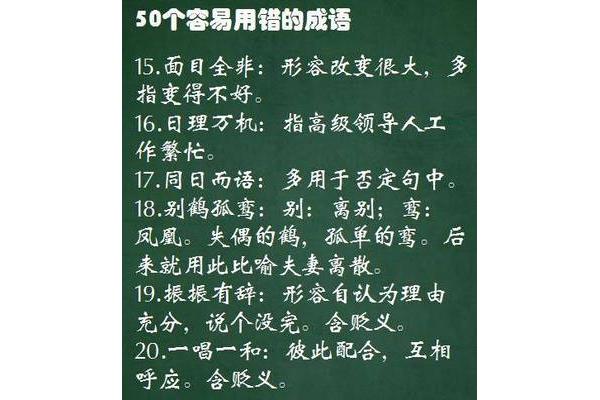 50个容易用错的成语
15.面目全非：形容改变很大，多
指变得不好。
16.日理万机：指高级领导人工
作繁忙。
17.同日而语：多用于否定句中。
18.别鹤孤鸾：别：离别；鸾：
凤凰。失偶的鹤，孤单的鸾。后
来就用此比喻夫妻离散。
19.振振有辞：形容自认为理由
充分，说个没完。含贬义。
20.一唱一和：彼此配合，互相
呼应。含贬义。